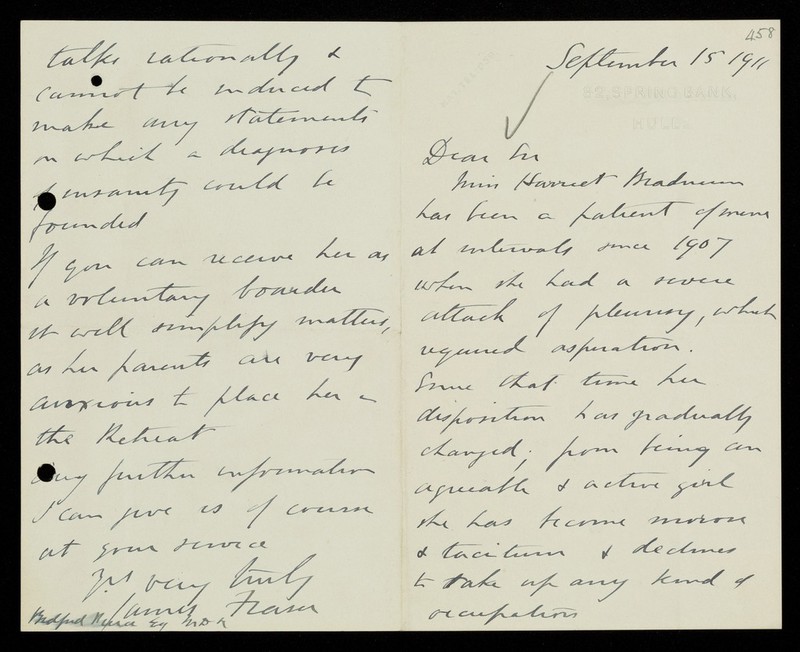 458
September 15 1911
82, SPRING BANK,
HULL.
Dear Sir
Miss Harriet
has been a patient of mine
at intervals since 1907
when she had a severe
attack of pleurisy, which
required aspiration.
Since that time her
disposition has gradually
changed; from being an
agreeable & active girl
she has become morose
& taciturn & declines
to take up any kind of
occupation
talks rationally &
cannot be induced to
make any statements
on which a diagnosis
of insanity could be
founded
If you can receive her as
a voluntary boarder
it will simplify matters,
as her parents are very
anxious to place her in
the Retreat
Any further information
I can give is of course
at your service
Yrs very truly
James Fraser
Bedford Pierce Esq M D